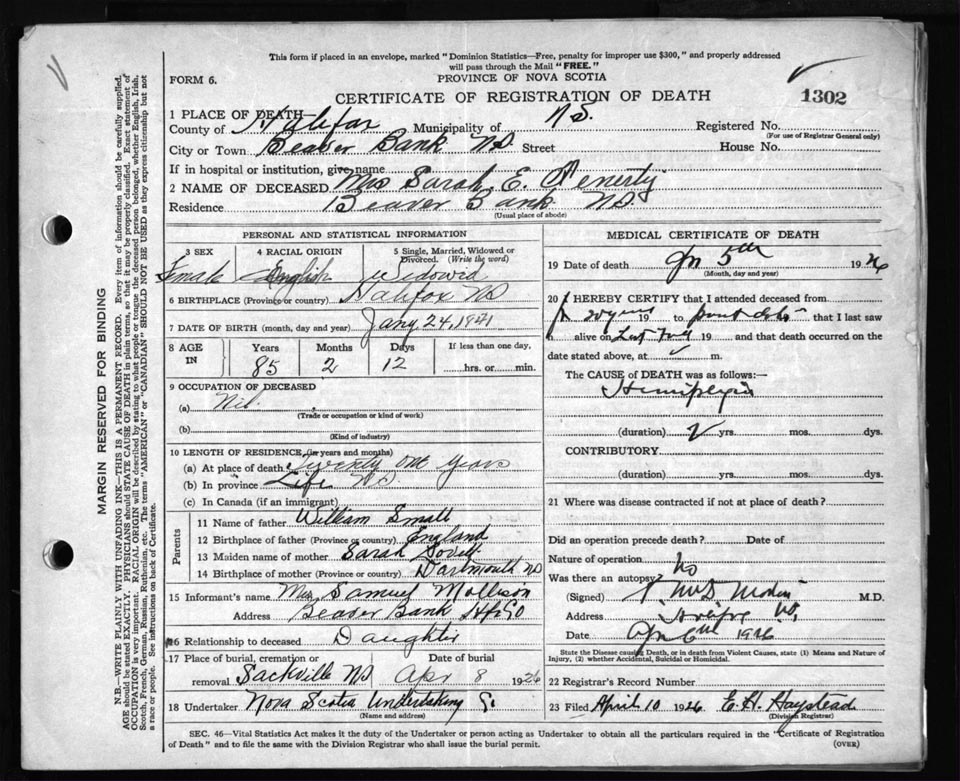 This form if placed in an envelope, marked "Dominion Statistics—Free, penalty for improper use $300," and properly addressed
will pass through the Mail "FREE."
FORM 6.
PROVINCE OF NOVA SCOTIA
CERTIFICATE OF REGISTRATION OF DEATH
1302
1 PLACE OF DEATH
County of Halifax Municipality of N S. Registered No.
(For use of Registrar General only)
City or Town Beaver Bank NS Street House No.
If in hospital or institution, give name
2 NAME OF DECEASED Mrs Sarah E. Fenerty
Residence Beaver Bank NS
(Usual place of abode)
PERSONAL AND STATISTICAL INFORMATION
3 SEX 4 RACIAL ORIGIN 5 Single, Married, Widowed or
Divorced. (Write the word)
Female English Widowid
6 BIRTHPLACE (Province or country) Halifax NS
7 DATE OF BIRTH (month, day and year) Jany 24, 1841
8 AGE IN Years Months Days If less than one day,
85 2 12 hrs. or min.
9 OCCUPATION OF DECEASED
(a) Nil.
(Trade or occupation or kind of work)
(b)
(Kind of industry)
10 LENGTH OF RESIDENCE (in years and months)
(a) At place of death one years
(b) In province Life NS
(c) In Canada (if an immigrant)
Parents
11 Name of father William Small
12 Birthplace of father (Province or country) England
13 Maiden name of mother Sarah
14 Birthplace of mother (Province or country) Dartmouth NS
15 Informant's name Mrs Samuel Mallison
Address Beaver Bank Hfx Co
16 Relationship to deceased Daughter
17 Place of burial, cremation or Date of burial
removal Sackville NS Apr 8 1926
18 Undertaker Nova Scotia Undertaking Co
(Name and address)
MEDICAL CERTIFICATE OF DEATH
19 Date of death 5th 1926
(Month, day and year)
20 I HEREBY CERTIFY that I attended deceased from
20 years 19 to that I last saw
h alive on 19 and that death occurred on the
date stated above, at m.
The CAUSE of DEATH was as follows:—
Hemiplegia
(duration) 2 yrs. mos. dys.
CONTRIBUTORY
(duration) yrs. mos. dys.
21 Where was disease contracted if not at place of death?
Did an operation precede death? Date of
Nature of operation
Was there an autopsy? No
(Signed) M.D.
Address Halifax NS
Date Apr 6th 1926
State the Disease Causing Death, or in death from Violent Causes, state (1) Means and Nature of
Injury, (2) whether Accidental, Suicidal or Homicidal.
22 Registrar's Record Number
23 Filed April 10 1926 E. H. Haystead
(Division Registrar)
SEC. 46—Vital Statistics Act makes it the duty of the Undertaker or person acting as Undertaker to obtain all the particulars required in the "Certificate of Registration
of Death" and to file the same with the Division Registrar who shall issue the burial permit.
(OVER)
MARGIN RESERVED FOR BINDING
N.B.—WRITE PLAINLY WITH UNFADING INK—THIS IS A PERMANENT RECORD. Every item of information should be carefully supplied.
AGE should be stated EXACTLY. PHYSICIANS should STATE CAUSE OF DEATH in plain terms, so that it may be properly classified. Exact statement of
OCCUPATION is very important. RACIAL ORIGIN will be described by stating to what people or tongue the deceased person belonged, whether English, Irish,
Scotch, French, German, Russian, Ruthenian, etc. The terms "AMERICAN" or "CANADIAN" SHOULD NOT BE USED as they express citizenship but not
a race or people. See instructions on back of Certificate.